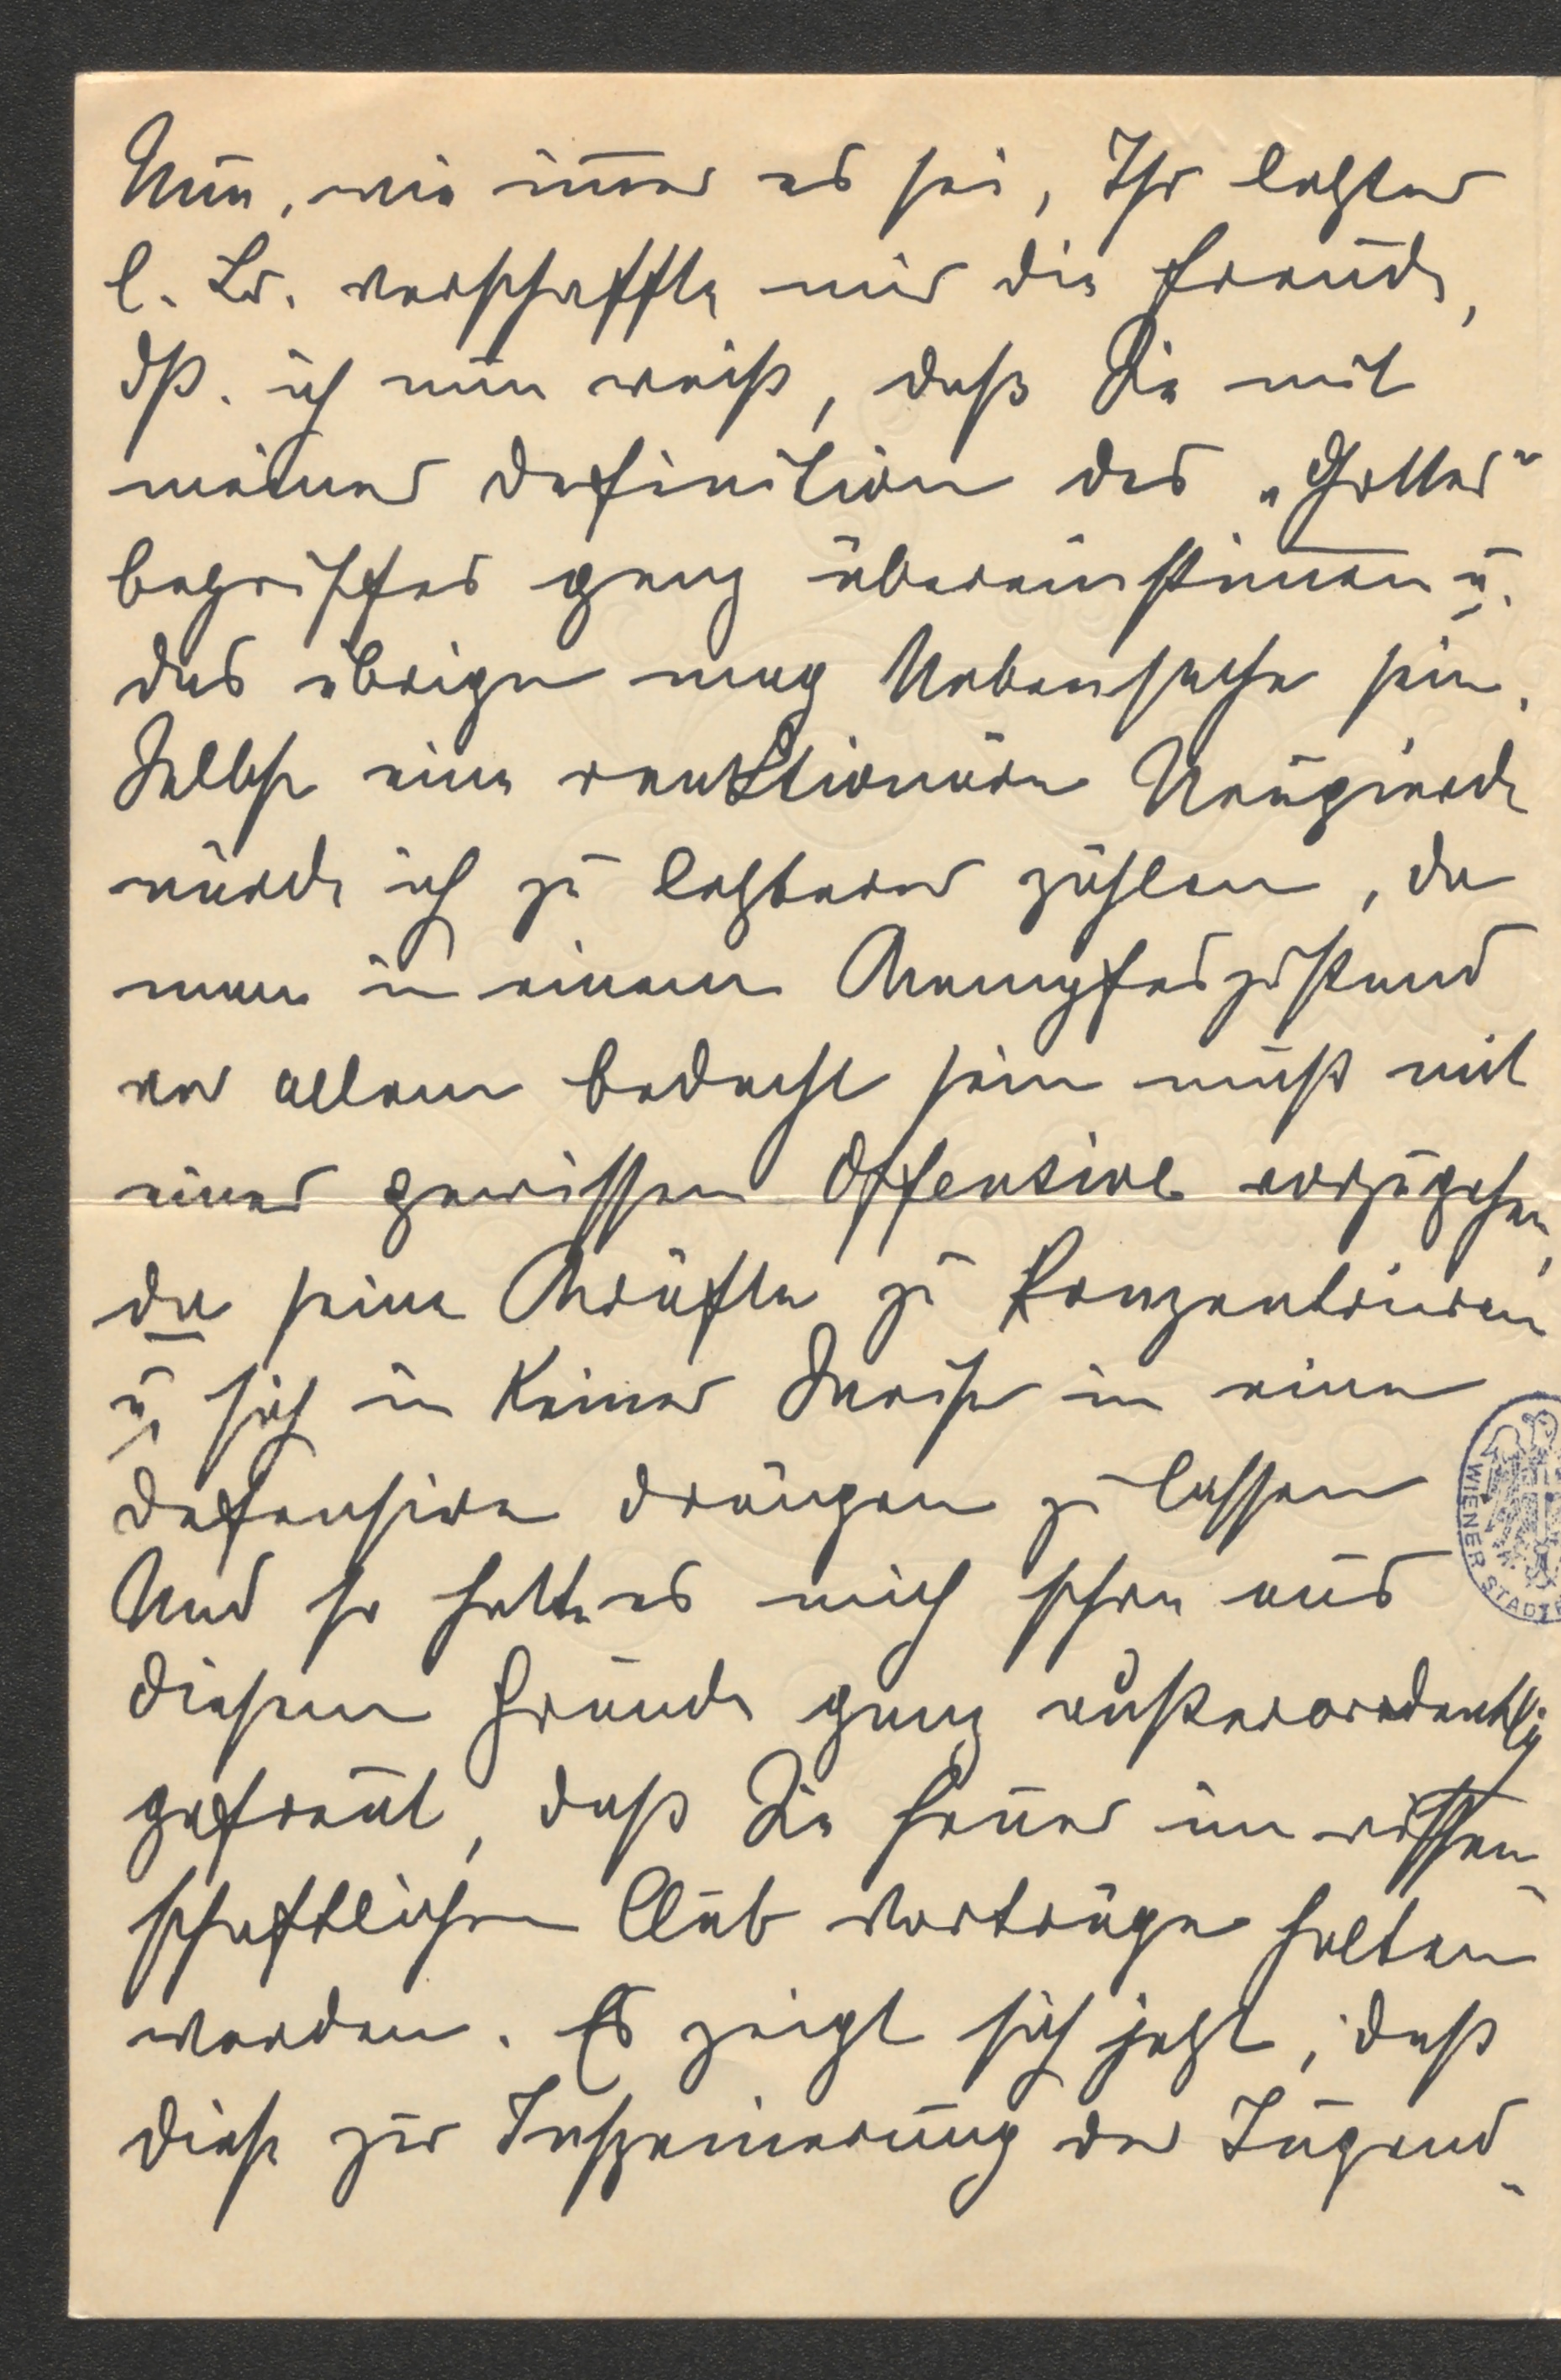 Nun, wie im̅er es sei, Ihr letzter
l. Br. verschaffte mir die Freude,
dß. ich nun weiß, daß Sie mit
meiner Definition des „Gottes"
begriffes ganz übereinstim̅en u.
das übrige mag Nebensache sein.
Selbst eine reaktionäre Neugierde
würde ich zu letzterer zählen, da
man in einem Kampfeszustand
vor allem bedacht sein muß mit
einer gewissen Offensive vorzugehen,
da seine Kräfte zu konzentrieren
u. sich in keiner Weise in eine
Defensive drängen zu lassen
Und so hatte es mich schon aus
diesem Grunde ganz außerordentlich
gefreut, daß Sie heuer im wissen
schaftlichen Club Vorträge halten
werden. Es zeigt sich jetzt, daß
diese zur Inszenierung der Jugend-
WIENER STADT